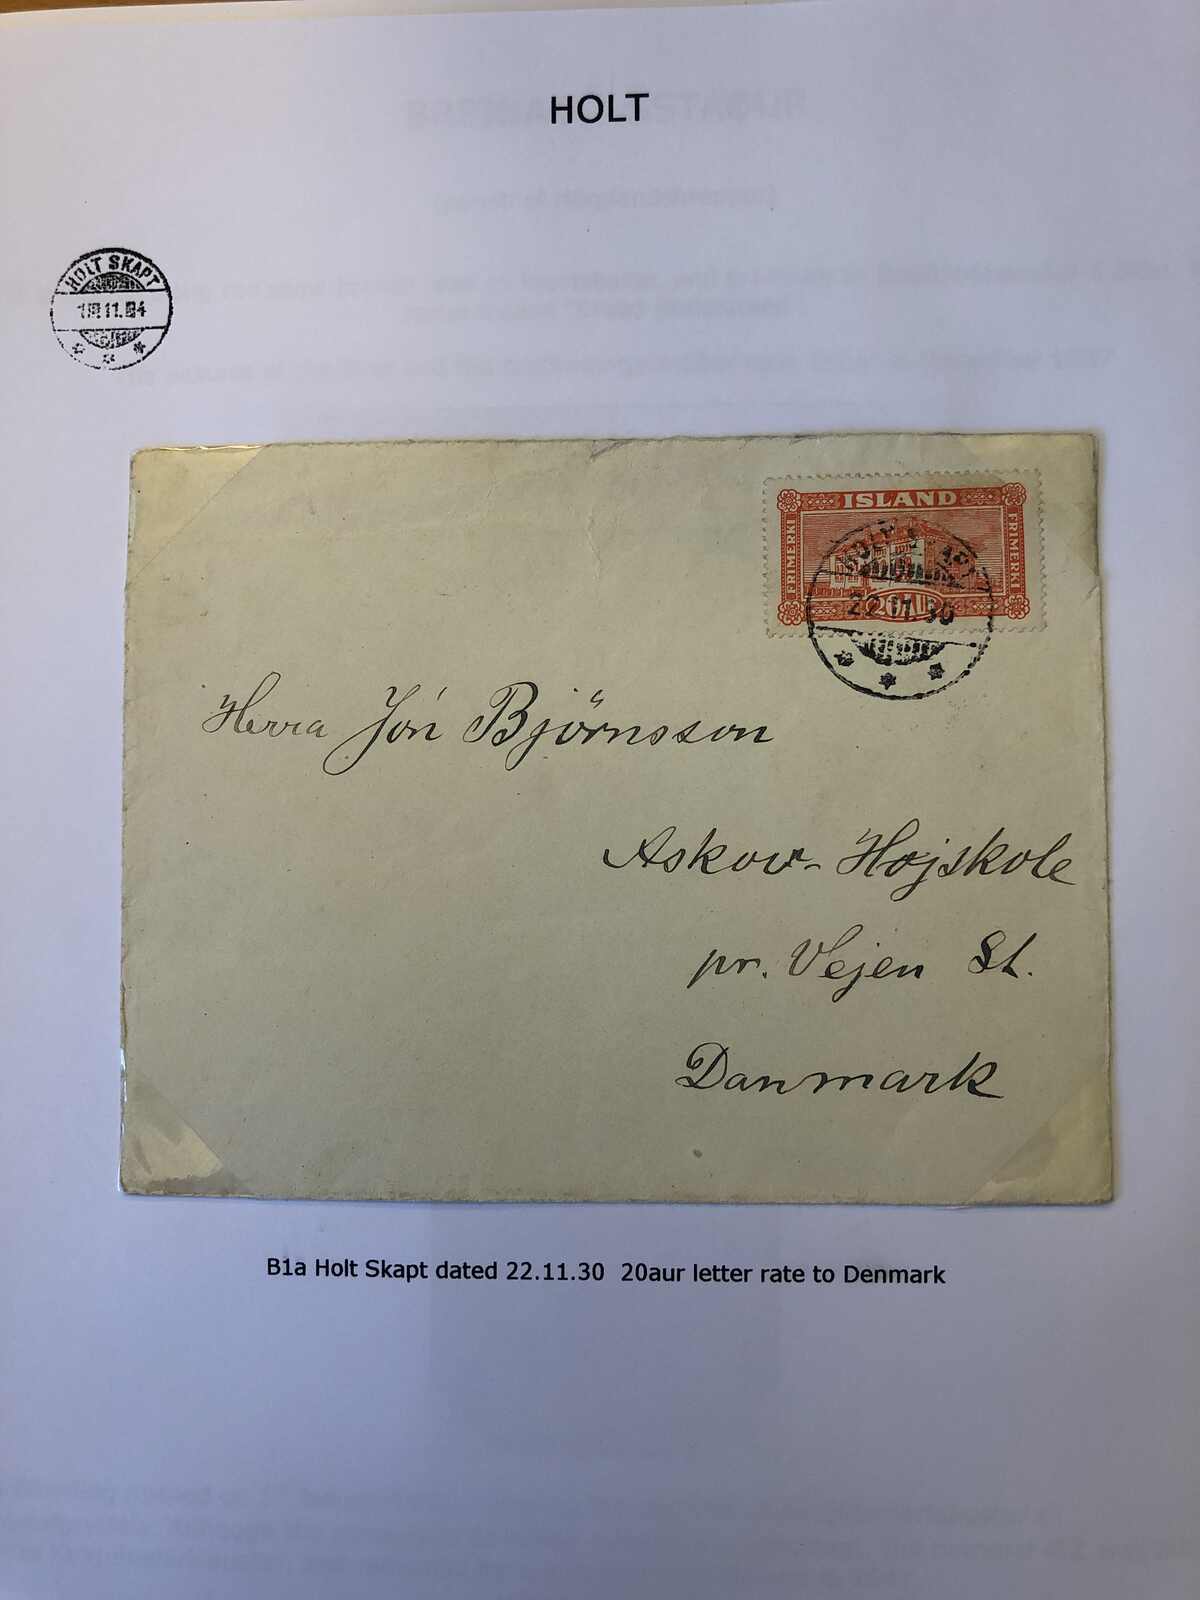 HOLT
HOLT SKAPT
11.
ISLAND
FRIMERKI
FRIMERKI
20
22.11.30
Herra Jón Björnsson
Askov-Højskole
pr. Vejen St.
Danmark
B1a Holt Skapt dated 22.11.30 20aur letter rate to Denmark